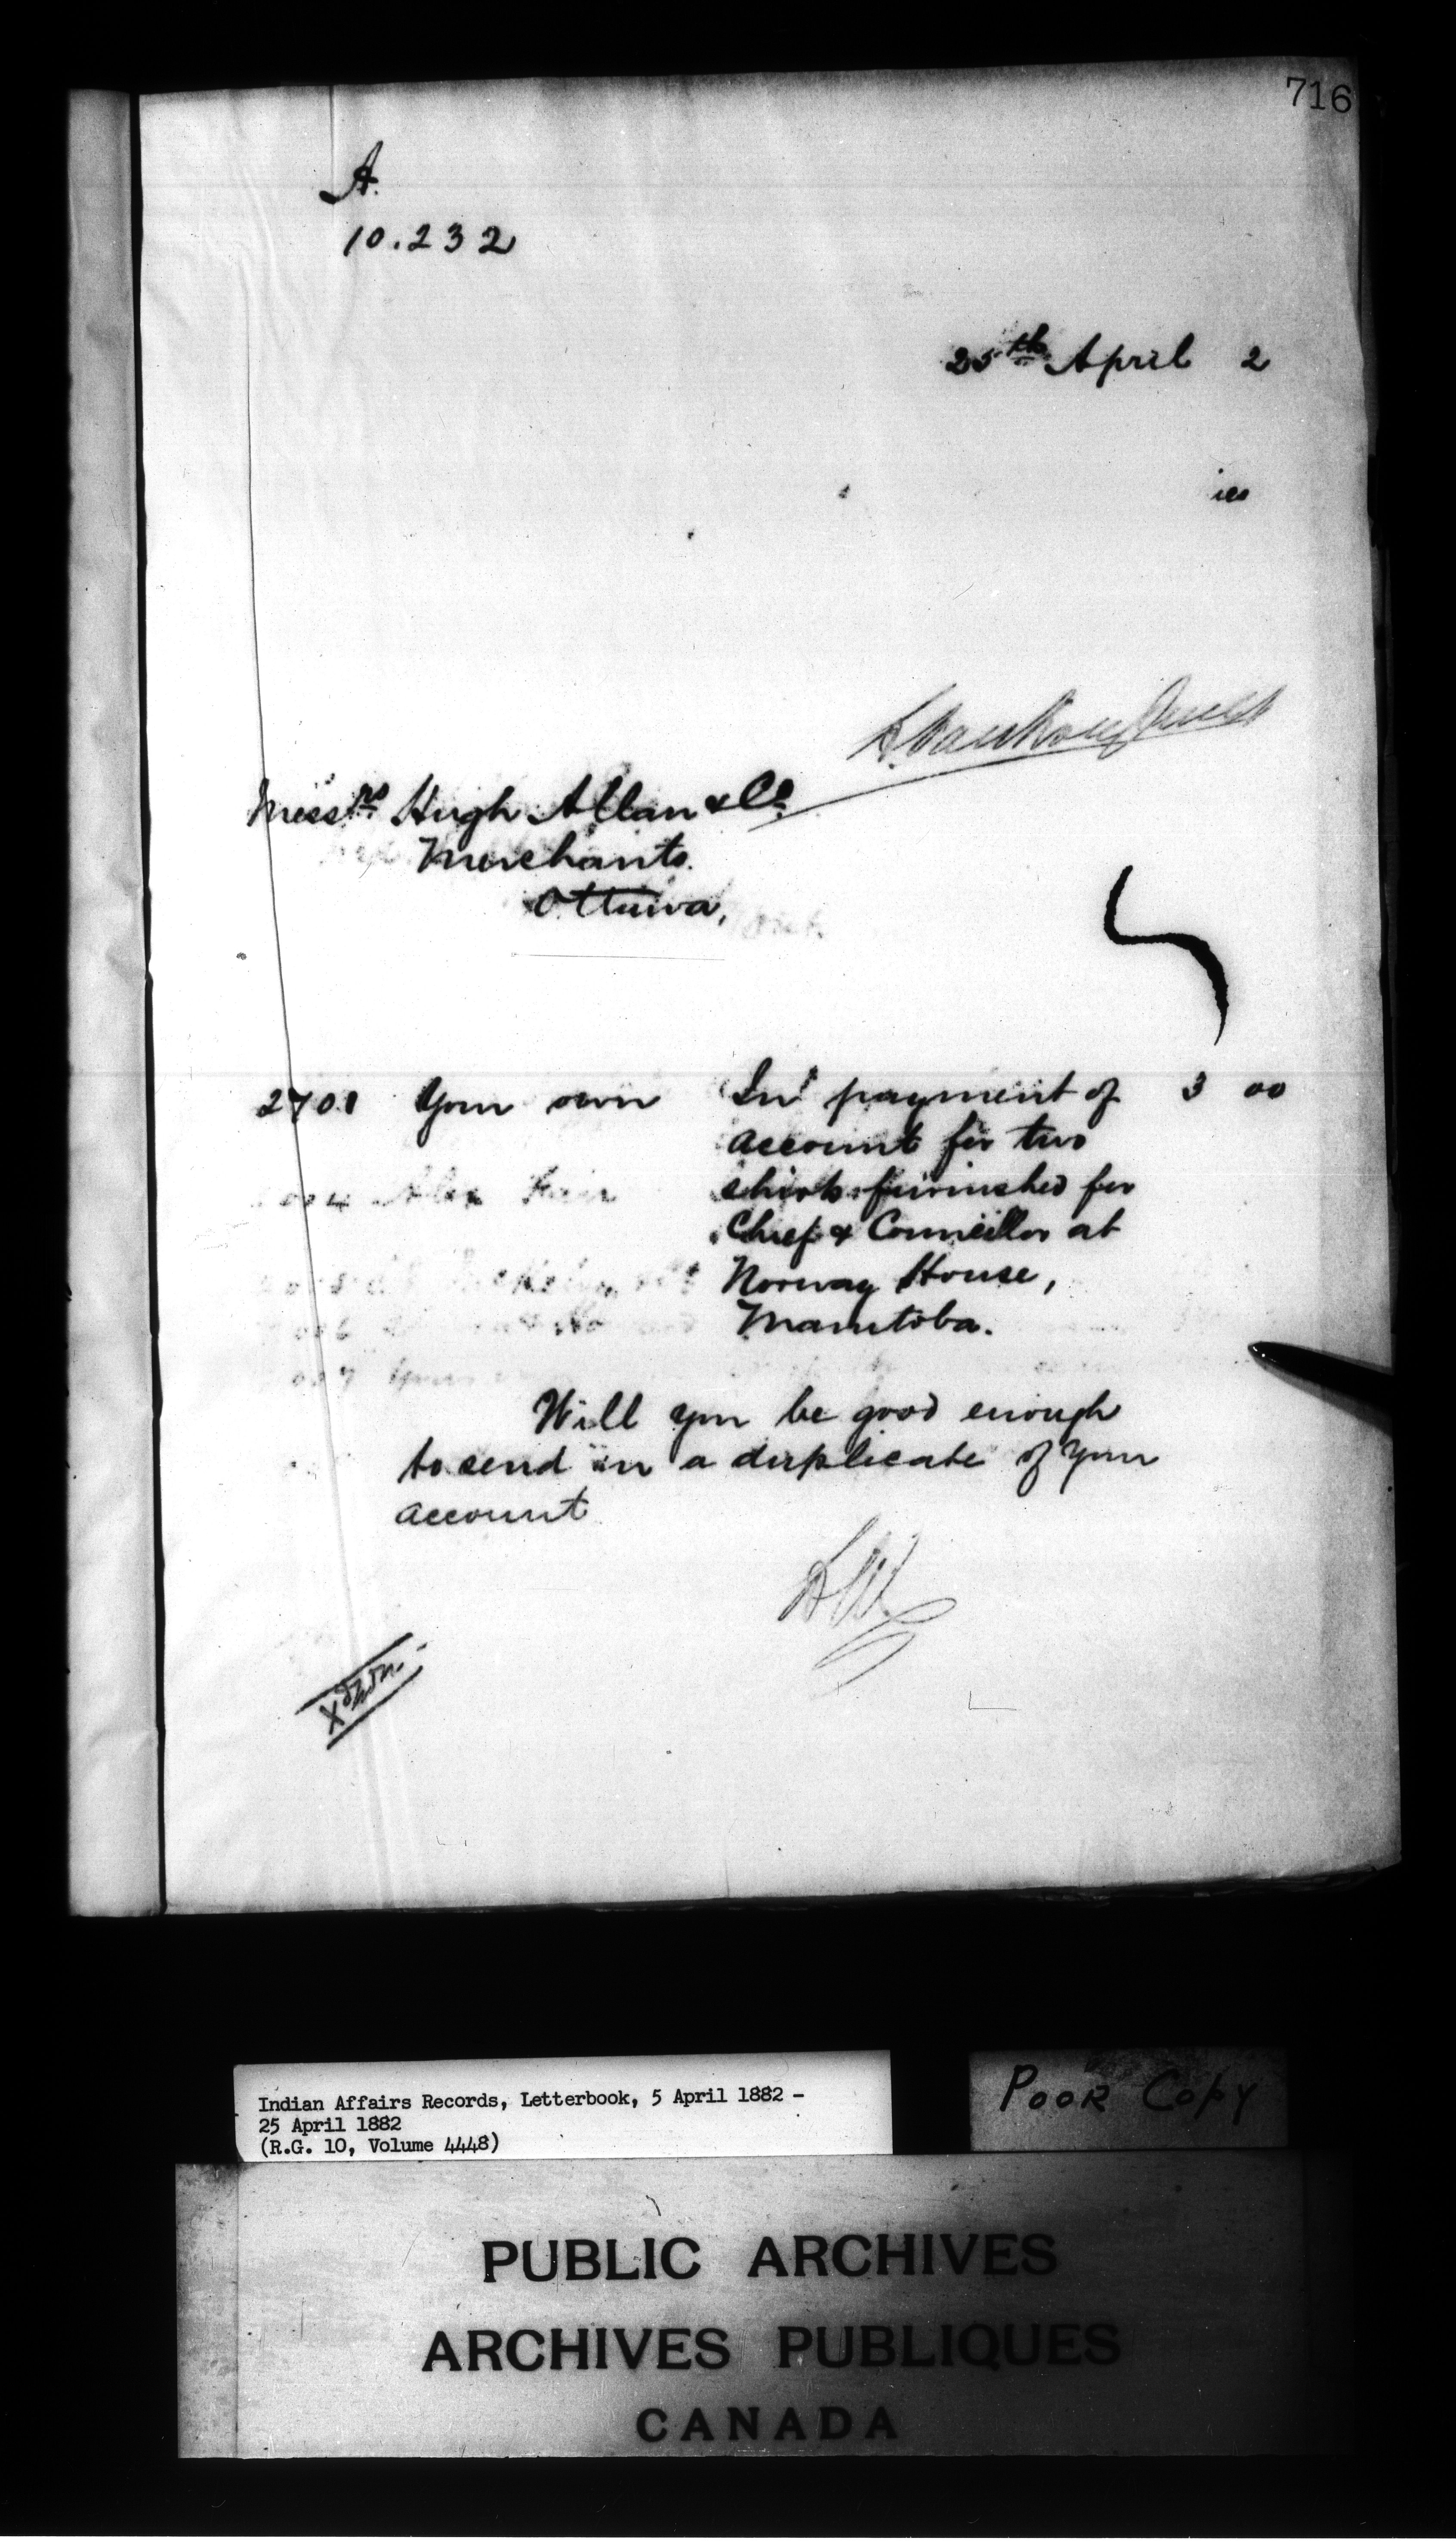 716
A.
10.232
25th April 2
ies
Messrs Hugh Allan & Co
Merchants.
Ottawa,
2701 Your own In payment of 3 00
account for two
shirts furnished for
Chief & Councillor at
Norway House,
Manitoba.
Will you be good enough
to send in a duplicate of your
account
Indian Affairs Records, Letterbook, 5 April 1882 -
25 April 1882
(R.G. 10, Volume 4448)
POOR COPY
PUBLIC ARCHIVES
ARCHIVES PUBLIQUES
CANADA